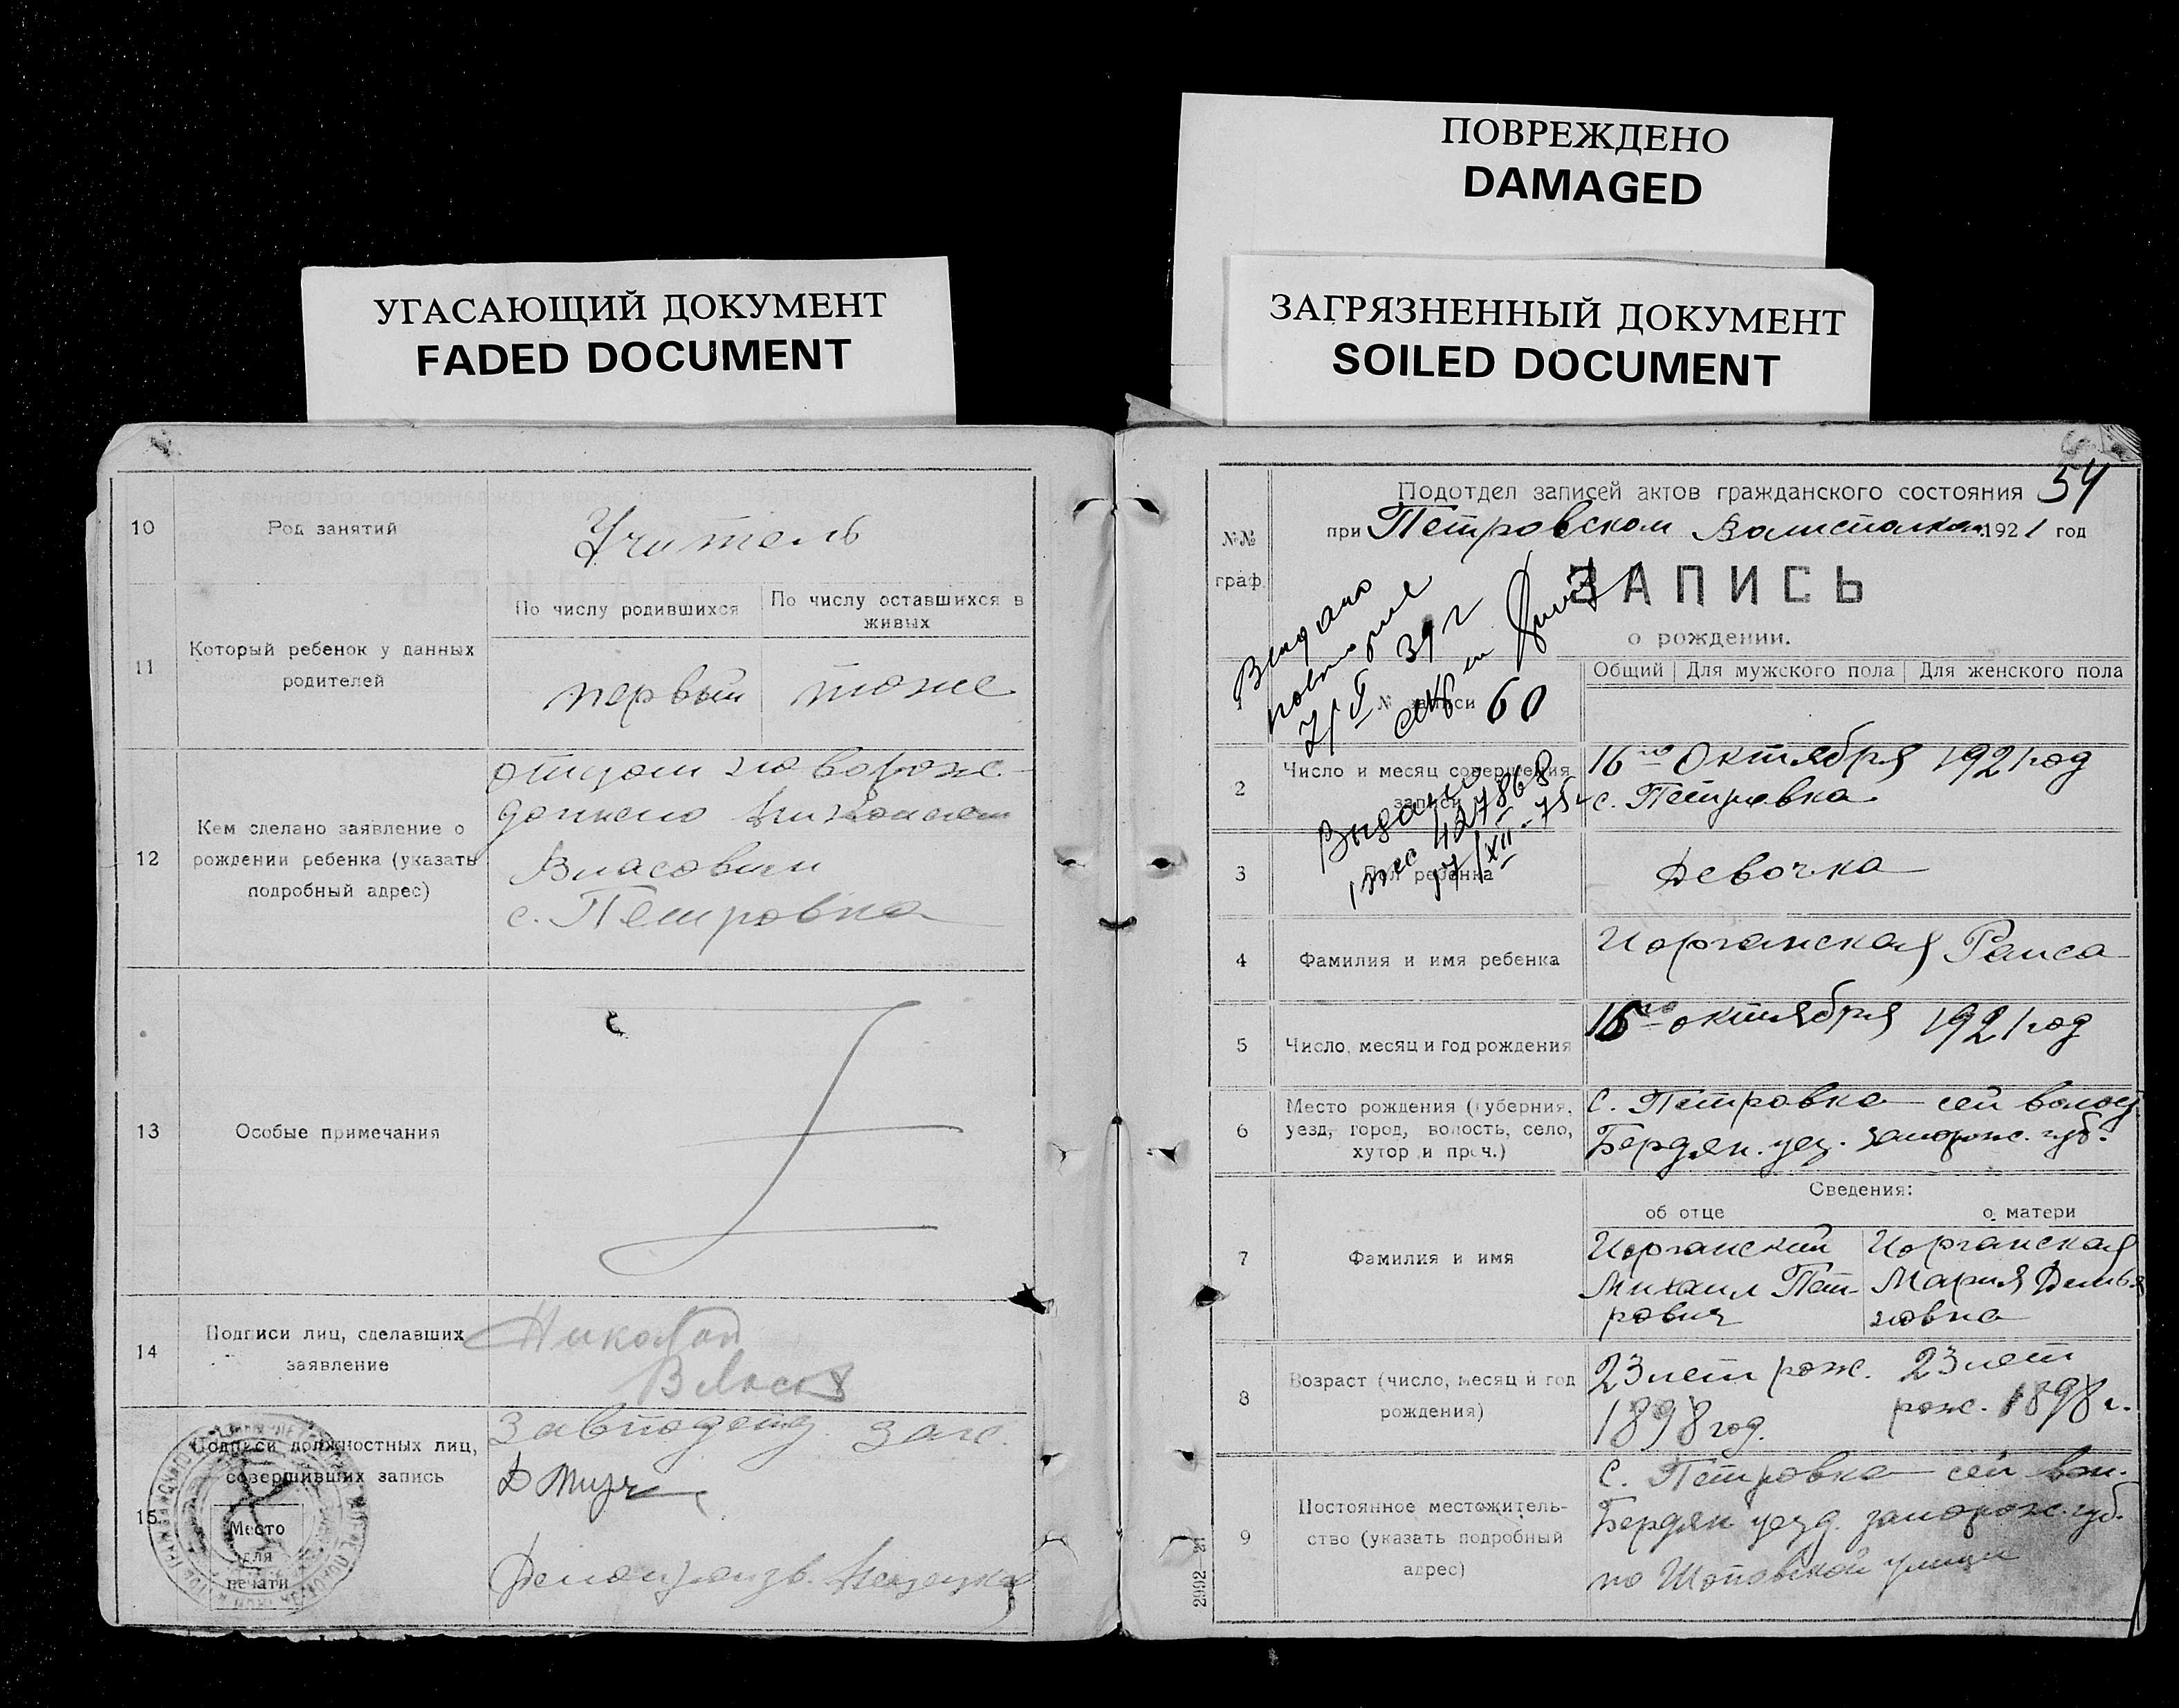 ПОВРЕЖДЕНО
DAMAGED
УГАСАЮЩИЙ ДОКУМЕНТ
FADED DOCUMENT
ЗАГРЯЗНЕННЫЙ ДОКУМЕНТ
SOILED DOCUMENT
10
Род занятий
Учитель
11
Который ребенок у данных
родителей
По числу родившихся
По числу оставшихся в
живых
первый
тоже
12
Кем сделано заявление о
рождении ребенка (указать
подробный адрес)
отцом новорож-
Власовым
с. Петровка
13
Особые примечания
14
Подписи лиц, сделавших
заявление
Николай
Власов
15
Подписи должностных лиц,
совершивших запись
Место
для
печати
Завподотд. зап.
Делопроизв.
54
Подотдел записей актов гражданского состояния
при Петровском Волисполкоме 1921 год
№№
граф.
ЗАПИСЬ
о рождении.
Выдано
повторное
39 г
Общий
Для мужского пола
Для женского пола
1
№ записи 60
2
Число и месяц совершения
записи
16го Октября 1921 год
с. Петровка
Выдано
427868
17/XII-75г
3
Пол ребенка
Девочка
4
Фамилия и имя ребенка
Иорганская Раиса
5
Число, месяц и год рождения
16го октября 1921 год
6
Место рождения (губерния,
уезд, город, волость, село,
хутор и проч.)
С. Петровка сей волос.
Бердян. уез. запорож. губ.
Сведения:
об отце
о матери
7
Фамилия и имя
Иорганский
Михаил Пет-
рович
Иорганская
Мария Демья
новна
8
Возраст (число, месяц и год
рождения)
23 лет рож.
1898 год.
23 лет
рож. 1898 г.
9
Постоянное местожитель-
ство (указать подробный
адрес)
С. Петровка сей вол.
Бердян уезд. запорож. губ.
по улици
2992—21